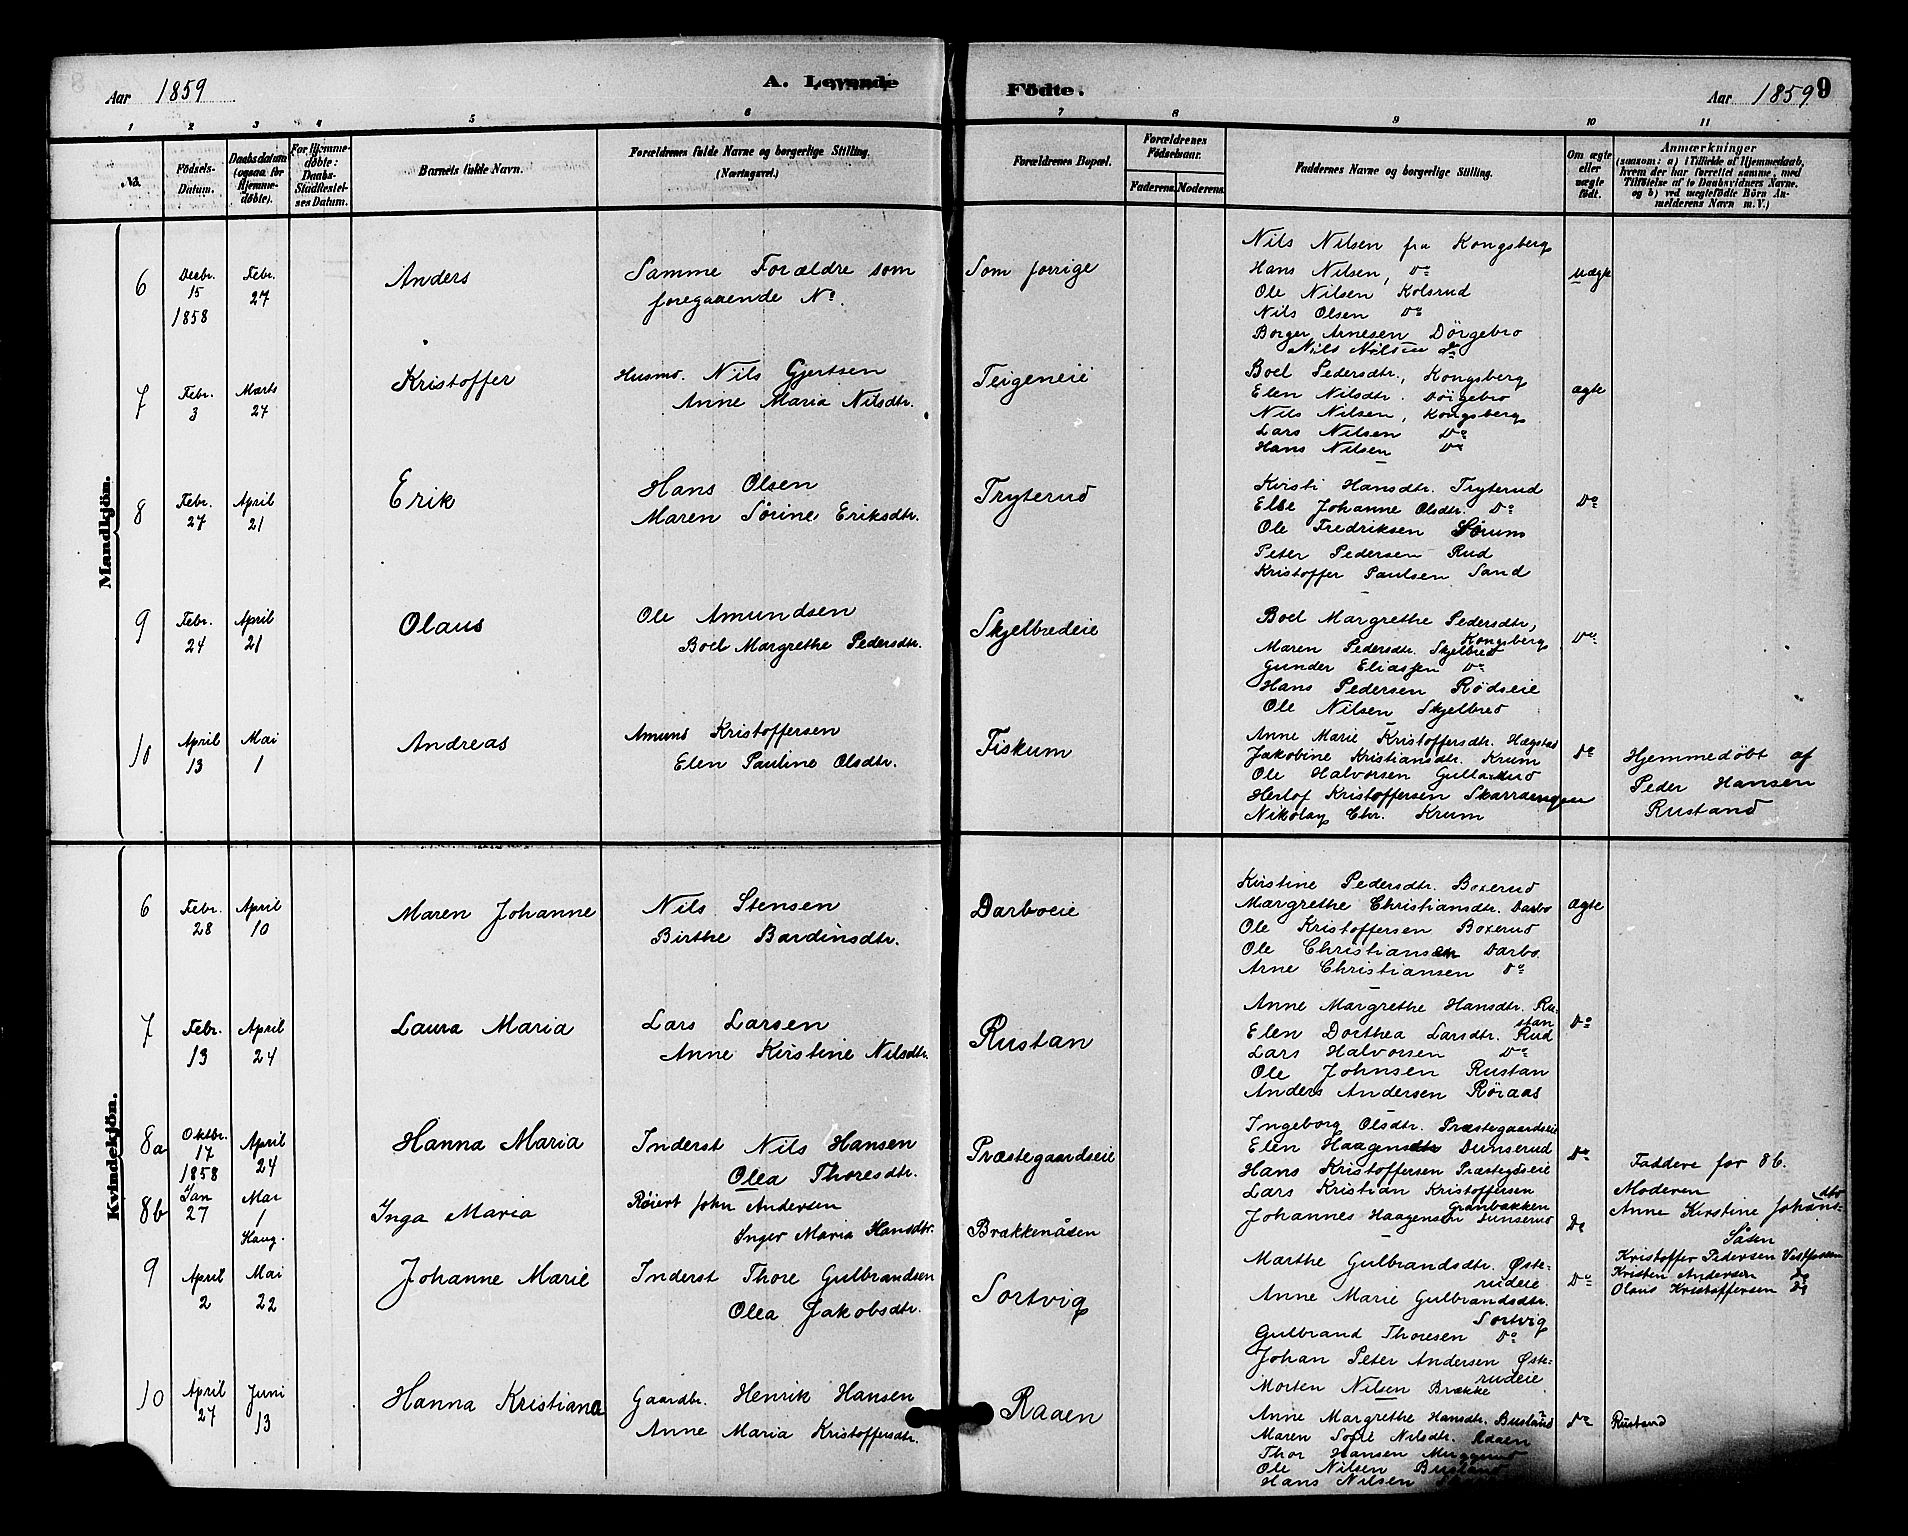 Aar 1859
A. Levende
Födte.
Aar 1859
9
1 2 3 4 5 6 7 8 9 10 11
No.
Födsels-
Datum.
Daabsdatum
(ogsaa for
Hjemme-
döbte).
For Hjemme-
döbte:
Daabs-
Stadfæstel-
ses Datum.
Barnets fulde Navn.
Forældrenes fulde Navne og borgerlige Stilling.
(Næringsvei.)
Forældrenes Bopæl.
Forældrenes
Födselsaar.
Faderens.
Moderens.
Faddernes Navne og borgerlige Stilling.
Om ægte
eller
uægte
födt.
Anmærkninger
(saasom: a) i Tilfælde af Hjemmedaab,
hvem der har forrettet samme, med
Tilföielse af to Daabsvidners Navne,
og b) ved uægtefödte Börn An-
melderens Navn m. V.)
Mandkjön.
6
Decbr.
15
1858
Febr.
27
Anders
Samme Forældre som
foregaaende No.
Som forrige
Nils Nilsen fra Kongsberg
Hans Nilsen, Do
Ole Nilsen Kolsrud
Nils Olsen Do
Borger Arnesen Dörgebro
Nils Nilsen do
uægte
7
Febr.
3
Marts
27
Kristoffer
Husmd. Nils Gjertsen
Anne Maria Nilsdtr.
Teigeneie
Boel Pedersdtr., Kongsberg
Elen Nilsdtr. Dörgebro
Nils Nilsen, Kongsberg
Lars Nilsen Do
Hans Nilsen Do
ægte
8
Febr.
27
April
21
Erik
Hans Olsen
Maren Sörine Eriksdtr.
Tryterud
Kristi Hansdtr. Tryterud
Else Johanne Olsdtr. Do
Ole Fredriksen Sörum
Peter Pedersen Rud
Kristoffer Paulsen Sand
Do
9
Febr.
24
April
21
Olaus
Ole Amundsen
Boel Margrethe Pedersdtr.
Skjelbredeie
Boel Margrethe Pedersdtr,
Kongsberg
Maren Pedersdtr. Skjelbred
Gunder Eliassen Do
Hans Pedersen Rødseie
Ole Nilsen Skjelbred
Do
10
April
13
Mai
1
Andreas
Amund Kristoffersen
Elen Pauline Olsdtr.
Fiskum
Anne Marie Kristoffersdtr. Hægstad
Jakobine Kristiansdtr. Krum
Ole Halvorsen
Herlof Kristoffersen
Nikolay Chr. Krum
Do
Hjemmedøbt af
Peder Hansen
Rustand
Kvindekjön.
6
Febr.
28
April
10
Maren Johanne
Nils Stensen
Birthe Bardinsdtr.
Darboeie
Kirstine Pedersdtr. Boxerud
Margrethe Christiansdtr. Darbo
Ole Kristoffersen Boxerud
Ole Christiansen Darbo
Arne Christiansen Do
ægte
7
Febr.
13
April
24
Laura Maria
Lars Larsen
Anne Kirstine Nilsdtr.
Rustan
Anne Margrethe Hansdtr. Ru-
stan
Elen Dorthea Larsdtr. Rud
Lars Halvorsen Do
Ole Johnsen Rustan
Anders Andersen Røraas
Do
8a
Oktbr.
17
1858
April
24
Hanna Maria
Inderst Nils Hansen
Olea Thoresdtr.
Præstegaardseie
Ingeborg Olsdtr. Præstegaardseie
Elen Haagensdtr Dunserud
Hans Kristoffersen Præstegdseie
Lars Kristian Kristoffersen
Granbakken
Johannes Haagensen Dunserud
Do
Faddere for 8b.
8b
Jan
27
Mai
1
Haug.
Inga Maria
Røiert John Andersen
Inger Maria Hansdtr.
Brækkenåsen
Do
Moderen
Anne Kirstine Johans-
dtr
Såsen
Kristoffer Pedersen Vestfossen
Kristen Andersen do
Olaus Kristoffersen do
9
April
2
Mai
22
Johanne Marie
Inderst Thore Gulbrandsen
Olea Jakobsdtr.
Sortvig
Marthe Gulbrandsdtr. Øste-
rudeie
Anne Marie Gulbrandsdtr.
Sortvig
Gulbrand Thoresen Do
Johan Peter Andersen Øste-
rudeie
Morten Nilsen Brække
Do
10
April
27
Juni
13
Hanna Kristiana
Gaardbr. Henrik Hansen
Anne Maria Kristoffersdtr.
Raaen
Anne Margrethe Hansdtr. Bustand
Maren Sofie Nilsdtr. Raaen
Thor Hansen Muggerud
Ole Nilsen Bustand
Hans Nilsen
Do
Rustand